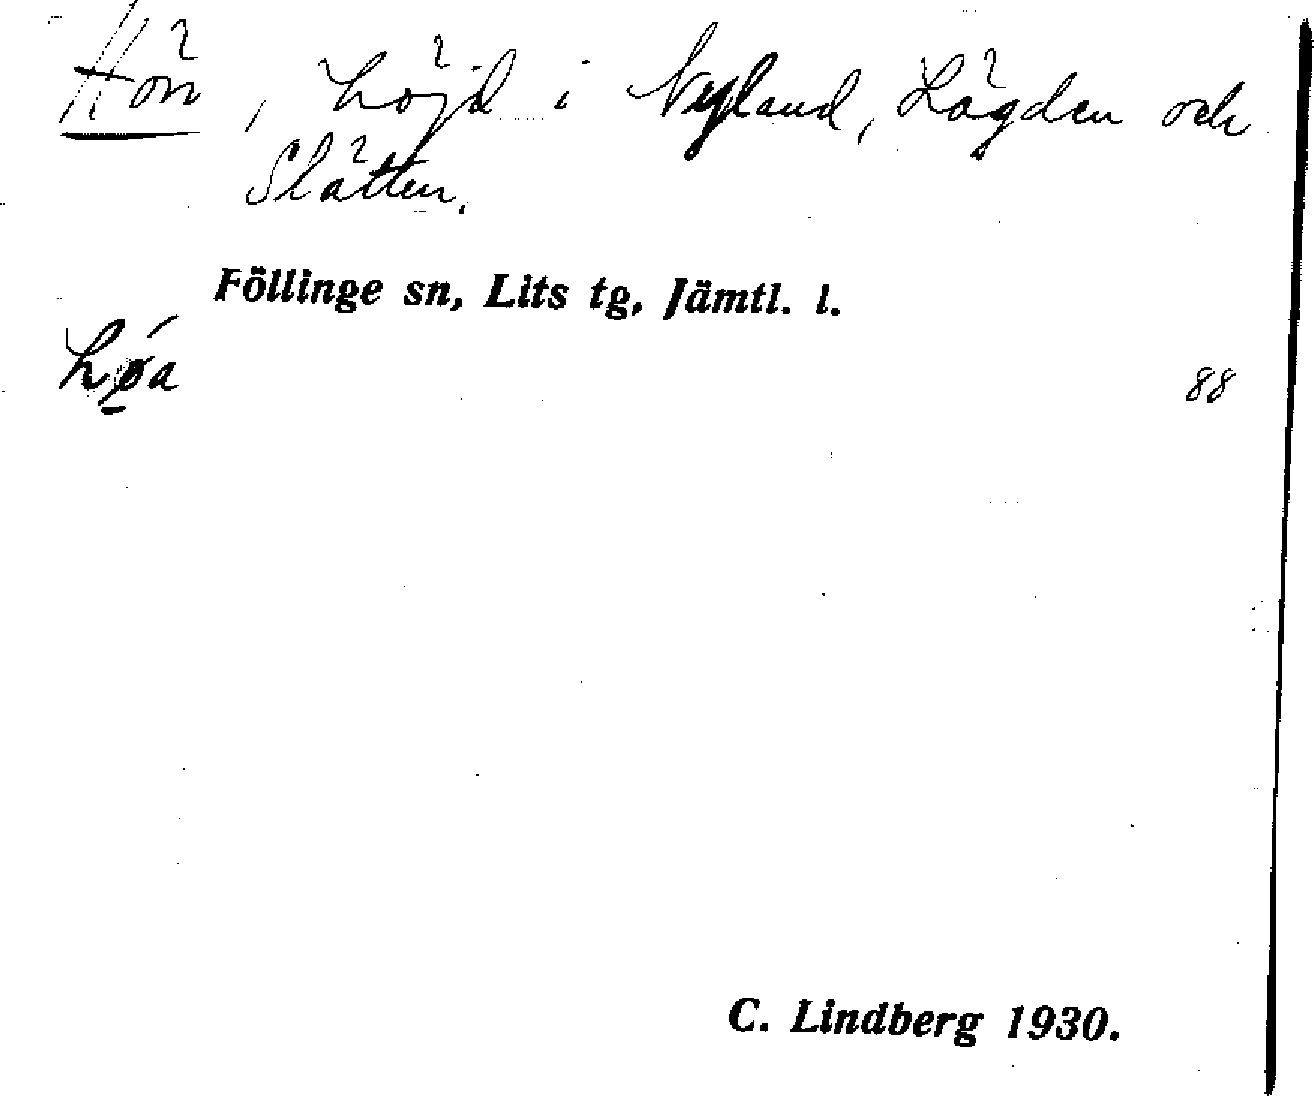 Hön, höjd i Nyland, Lägden och
Slåtten.
Föllinge sn, Lits tg, Jämtl. l.
høa
88
C. Lindberg 1930.